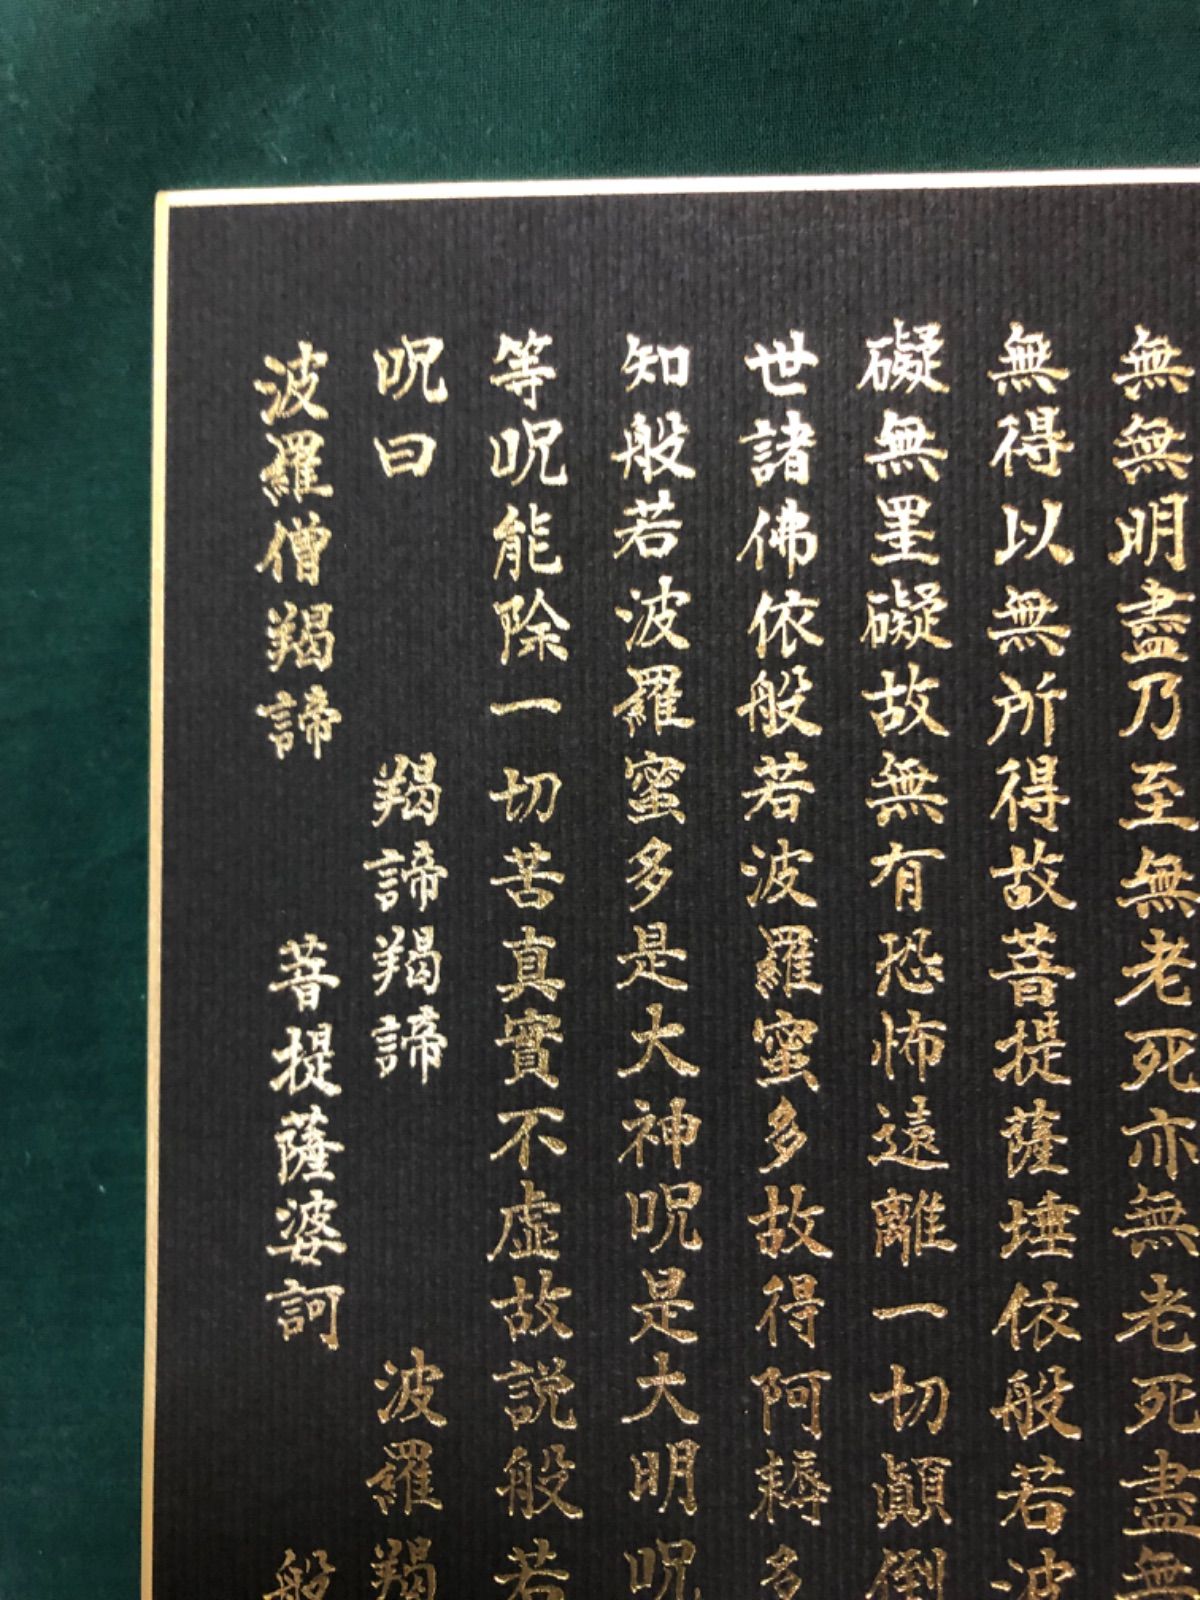 無無明盡乃至無老死亦無老死盡無
無得以無所得故菩提薩埵依般若波
礙無罣礙故無有恐怖遠離一切顚倒
世諸佛依般若波羅蜜多故得阿耨多
知般若波羅蜜多是大神呪是大明呪
等呪能除一切苦真實不虚故説般若
呪曰　羯諦羯諦　波羅羯
波羅僧羯諦　菩提薩婆訶　般